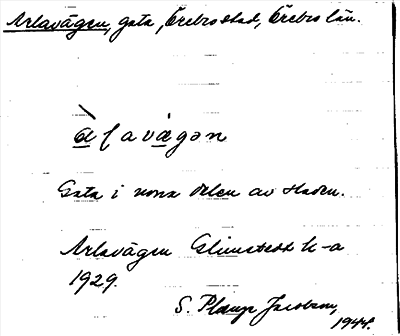 Arlavägen, gata, Örebro stad, Örebro län.
Gata i norra delen av staden.
Arlavägen Glimstedt k-a
1929.
S. Plange Jacobson,
1944.